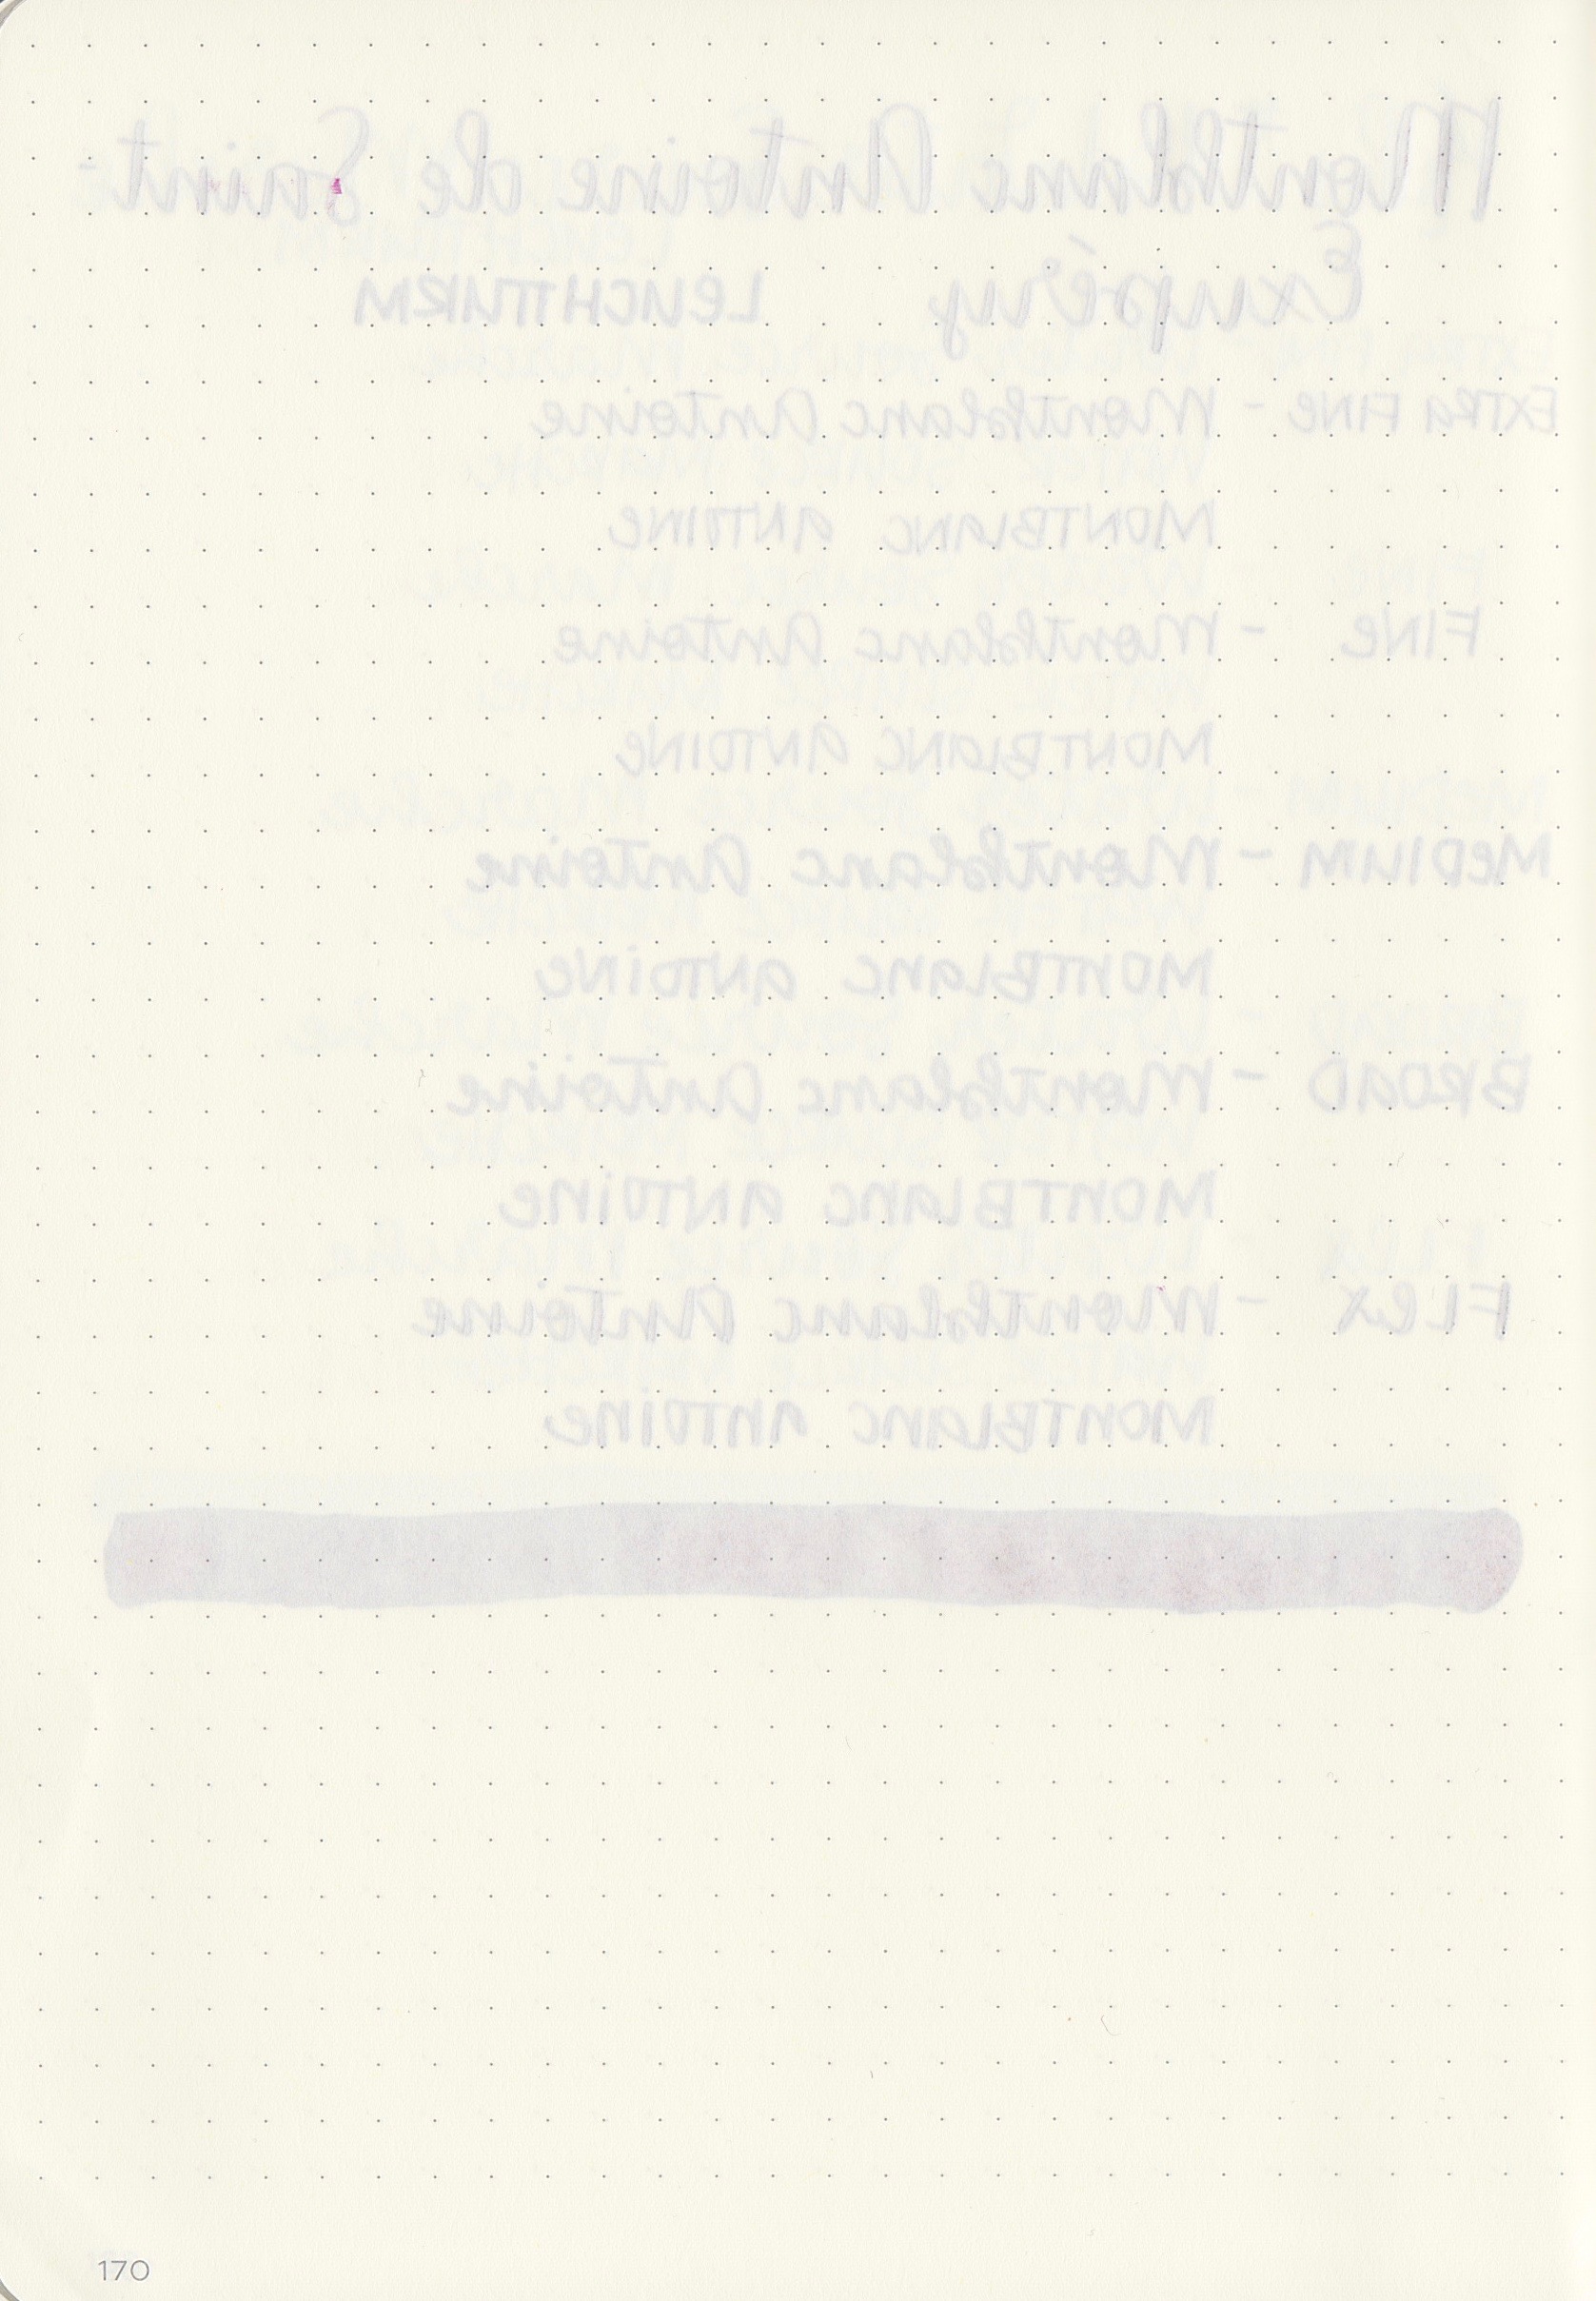 Montblanc Antoine de Saint-
Exupéry LEUCHTTURM
EXTRA FINE - Montblanc Antoine
MONTBLANC ANTOINE
FINE - Montblanc Antoine
MONTBLANC ANTOINE
MEDIUM - Montblanc Antoine
MONTBLANC ANTOINE
BROAD - Montblanc Antoine
MONTBLANC ANTOINE
FLEX - Montblanc Antoine
MONTBLANC ANTOINE
170